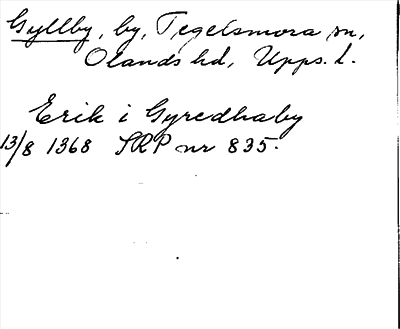 Gyllby, by, Tegelsmora sn,
Olands hd, Upps. l.
Erik i Gyredhaby
13/8 1368 SRP nr 835.